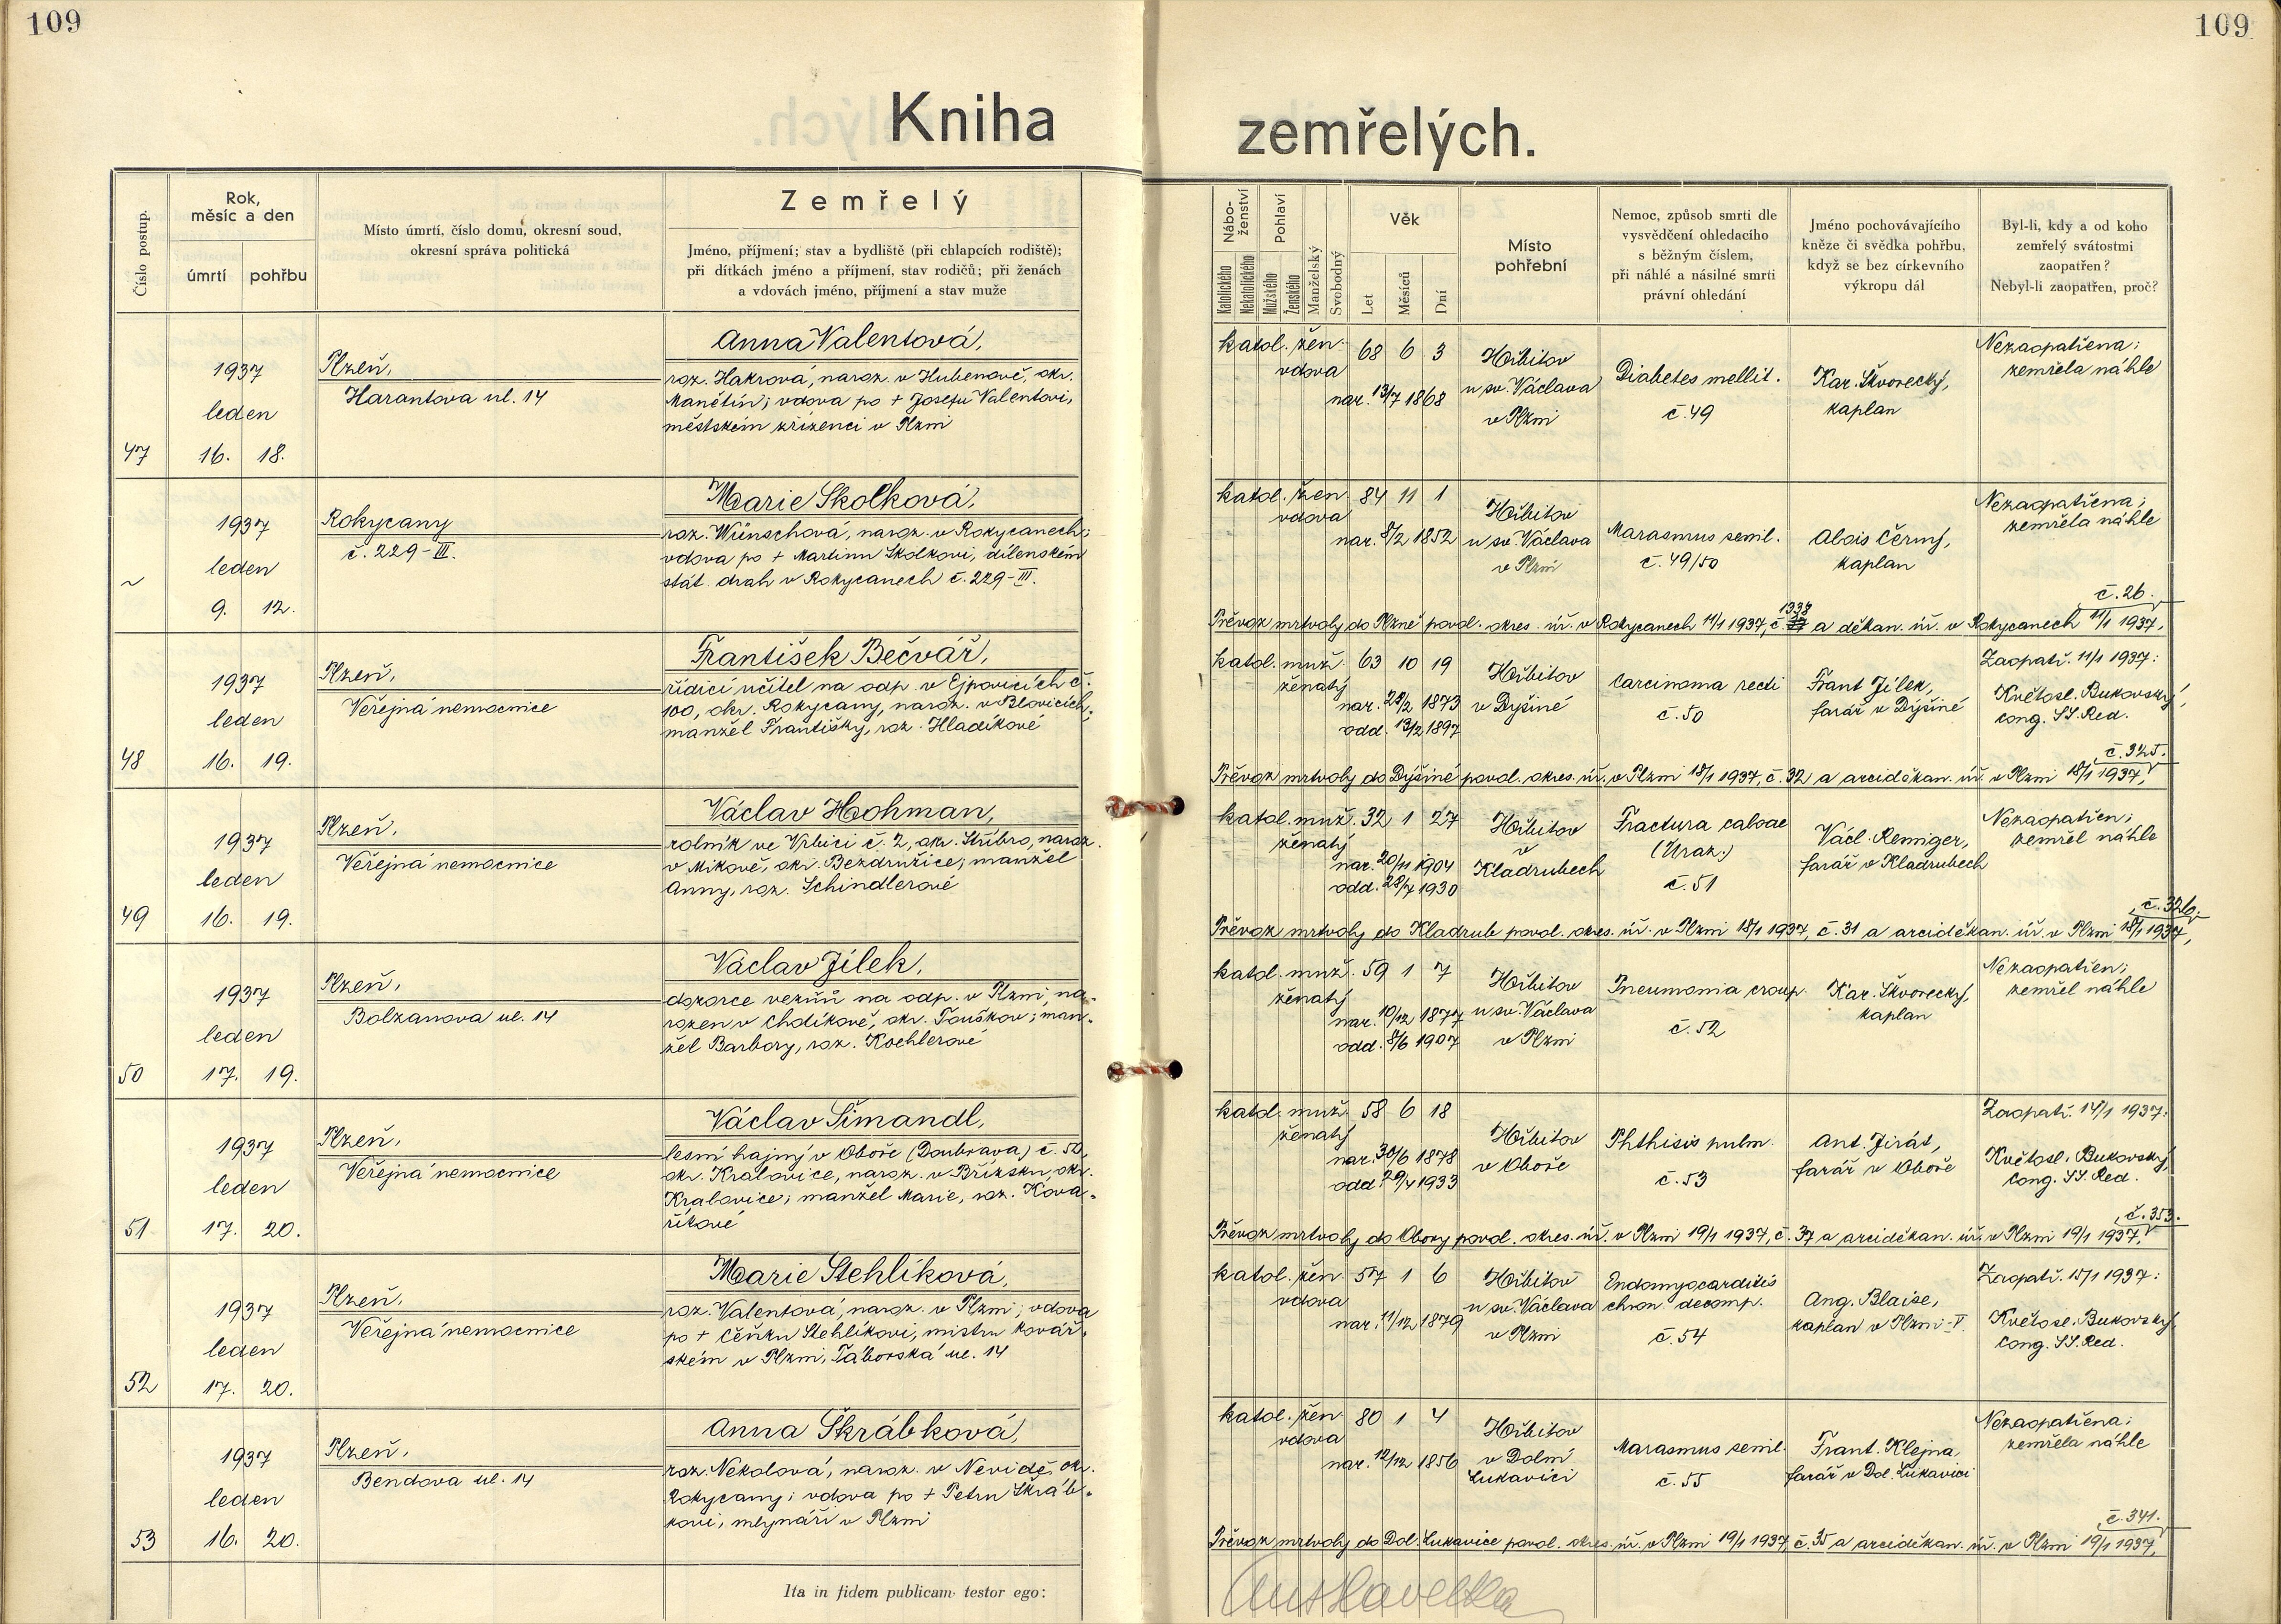 109
109
Kniha
zemřelých.
Číslo postup.
Rok,
měsíc a den
úmrtí
pohřbu
Místo úmrtí, číslo domu, okresní soud,
okresní správa politická
Zemřelý
Jméno, příjmení; stav a bydliště (při chlapcích rodiště);
při dítkách jméno a příjmení, stav rodičů; při ženách
a vdovách jméno, příjmení a stav muže
Nábo-
ženství
Katolického
Nekatolického
Pohlaví
Mužského
Ženského
Manželský
Svobodný
Věk
Let
Měsíců
Dní
Místo
pohřební
Nemoc, způsob smrti dle
vysvědčení ohledacího
s běžným číslem,
při náhlé a násilné smrti
právní ohledání
Jméno pochovávajícího
kněze či svědka pohřbu,
když se bez církevního
výkropu dál
Byl-li, kdy a od koho
zemřelý svátostmi
zaopatřen?
Nebyl-li zaopatřen, proč?
47
1937
leden
16. 18.
Plzeň,
Harantova ul. 14
Anna Valentová,
roz. Hakrová, naroz. v Hubenově, okr.
Manětín; vdova po + Josefu Valentovi,
městském zřízenci v Plzni
katol. žen. 68 6 3
vdova
nar. 13/7 1868
Hřbitov
u sv. Václava
v Plzni
Diabetes mellit.
č. 49
Kar. Škvorecký,
kaplan
Nezaopatřena;
zemřela náhle
~
1937
leden
9. 12.
Rokycany
č. 229-III.
Marie Skolková,
roz. Wünschová, naroz. v Rokycanech;
vdova po + Martinu Skolkovi, dílenském
stát. drah v Rokycanech č. 229-III.
katol. žen. 84 11 1
vdova
nar. 8/2 1852
Hřbitov
u sv. Václava
v Plzni
Marasmus senil.
č. 49/50
Alois Černý,
kaplan
Nezaopatřena;
zemřela náhle
č. 26.
1338
Převoz mrtvoly do Plzně povol. okres. úř. v Rokycanech 11/1 1937, č. a děkan. úř. v Rokycanech 11/1 1937,
48
1937
leden
16. 19.
Plzeň,
Veřejná nemocnice
František Bečvář,
řídící učitel na odp. v Ejpovicích č.
100, okr. Rokycany, naroz. v Blovicích;
manžel Františky, roz. Hladíkové
katol. muž. 63 10 19
ženatý
nar. 28/2 1873
odd. 13/2 1897
Hřbitov
v Dýšině
Carcinoma recti
č. 50
Frant Jílek,
farář v Dýšině
Zaopatř. 11/1 1937:
Květosl. Bukovský,
cong. SS. Red.
č. 325.
Převoz mrtvoly do Dýšině povol. okres. úř. v Plzni 18/1 1937, č. 32 a arciděkan. úř. v Plzni 18/1 1937,
49
1937
leden
16. 19.
Plzeň,
Veřejná nemocnice
Václav Hohman,
rolník ve Vrbici č. 2, okr. Stříbro, naroz.
v Mikově, okr. Bezdružice; manžel
Anny, roz. Schindlerové
katol. muž. 32 1 27
ženatý
nar. 20/11 1904
odd. 28/7 1930
Hřbitov
v
Kladrubech
Fractura calvae
(Úraz.)
č. 51
Václ. Renniger,
farář v Kladrubech
Nezaopatřen;
zemřel náhle
č. 326.
Převoz mrtvoly do Kladrub povol. okres. úř. v Plzni 18/1 1937, č. 31 a arciděkan. úř. v Plzni 18/1 1937,
50
1937
leden
17. 19.
Plzeň,
Bolzanova ul. 14
Václav Jílek,
dozorce vězňů na odp. v Plzni, na-
rozen v Chdíkově, okr. Touškov; man-
žel Barbory, roz. Koehlerové
katol. muž. 59 1 7
ženatý
nar. 10/12 1877
odd. 8/6 1907
Hřbitov
u sv. Václava
v Plzni
Pneumonia croup.
č. 52
Kar. Škvorecký,
kaplan
Nezaopatřen;
zemřel náhle
51
1937
leden
17. 20.
Plzeň,
Veřejná nemocnice
Václav Šimandl,
lesní hajný v Oboře (Doubrava) č. 50,
okr. Kralovice, naroz. v Břízsku, okr.
Kralovice; manžel Marie, roz. Kova-
říkové
katol. muž. 58 6 18
ženatý
nar. 30/6 1878
odd. 29/4 1933
Hřbitov
v Oboře
Phthisis pulm.
č. 53
Ant. Jirát,
farář v Oboře
Zaopatř. 14/1 1937:
Květosl. Bukovský,
cong. SS. Red.
č. 353.
Převoz mrtvoly do Obory povol. okres. úř. v Plzni 19/1 1937, č. 37 a arciděkan. úř. v Plzni 19/1 1937,
52
1937
leden
17. 20.
Plzeň,
Veřejná nemocnice
Marie Stehlíková,
roz. Valentová, naroz. v Plzni; vdova
po + Čeňku Stehlíkovi, mistru kovář-
ském v Plzni, Táborská ul. 14
katol. žen. 57 1 6
vdova
nar. 11/12 1879
Hřbitov
u sv. Václava
v Plzni
Endomyocarditis
chron. decomp.
č. 54
Ang. Blaise,
kaplan v Plzni-V.
Zaopatř. 15/1 1937:
Květosl. Bukovský,
cong. SS. Red.
53
1937
leden
16. 20.
Plzeň,
Bendova ul. 14
Anna Škrábková,
roz. Nekolová, naroz. v Nevidě, okr.
Rokycany; vdova po + Petru Škráb-
kovi, mlynáři v Plzni
katol. žen. 80 1 4
vdova
nar. 12/12 1856
Hřbitov
v Dolní
Lukavici
Marasmus senil.
č. 55
Frant. Klejna
farář v Dol. Lukavici
Nezaopatřena;
zemřela náhle
č. 341.
Převoz mrtvoly do Dol. Lukavice povol. okres. úř. v Plzni 19/1 1937, č. 35 a arciděkan. úř. v Plzni 19/1 1937,
Ita in fidem publicam testor ego: